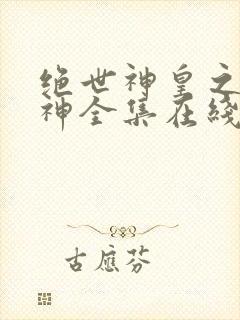 绝世神皇之
神全集在綫
古應芬